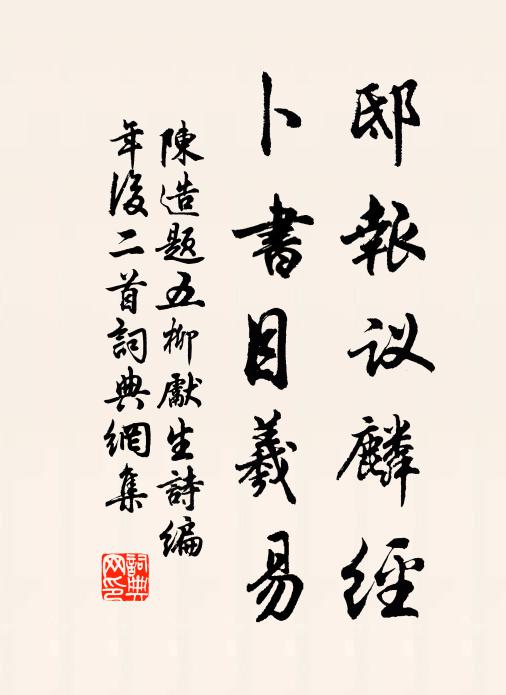 邸報议麟經
卜書目羲易
陳造題五柳獻生詩編
年後二首詞典網集
詞典網印